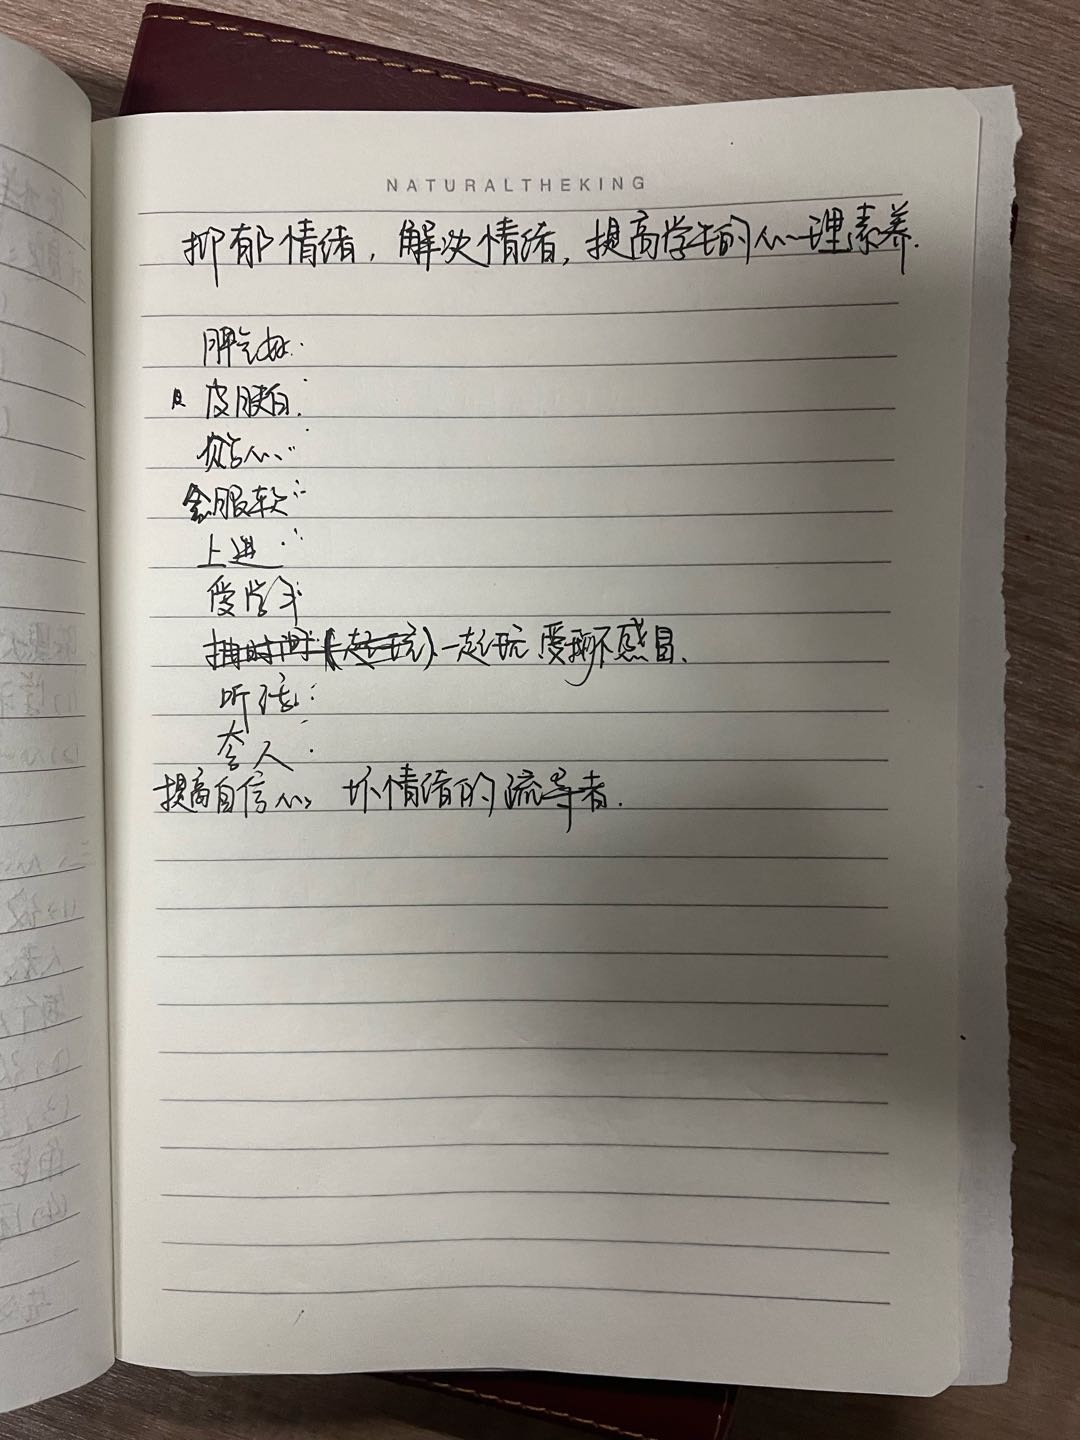 NATURALTHEKING
抑郁情绪，解决情绪，提高学生的心理素养.
脾气好.
皮肤白.
会服软
上进
爱学习
一起玩 爱聊不感冒、
听话
夸人
提高自信心 坏情绪的疏导者.